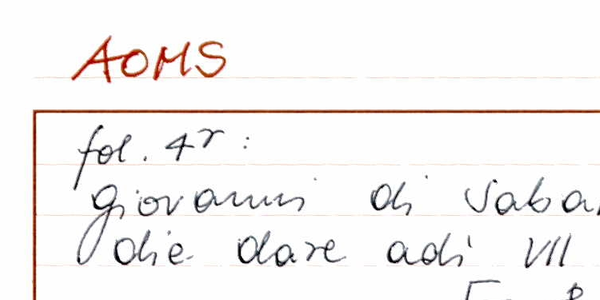 AOMS
fol. 4r :
giovanni di
die dare adi VII